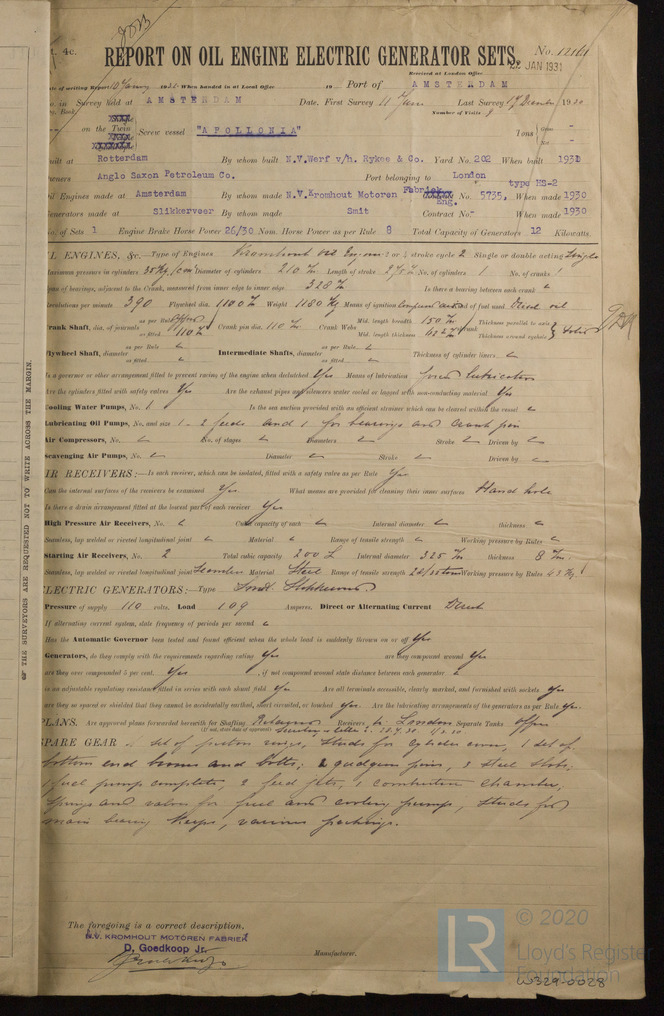 4c.
REPORT ON OIL ENGINE ELECTRIC GENERATOR SETS.
No. 12161
22 JAN 1931
Received at London Office
of writing Report 19 When handed in at Local Office 19 Port of AMSTERDAM
in Survey held at AMSTERDAM Date. First Survey 11 June Last Survey 19 30
Book. Number of Visits
on the Twin Screw vessel "APOLLONIA" Tons Gross -
Net -
Built at Rotterdam By whom built N.V.Werf v/h. Rykee & Co. Yard No. 202 When built 1930
Owners Anglo Saxon Petroleum Co. Port belonging to London
type HS-2
Oil Engines made at Amsterdam By whom made N.V.Kromhout Motoren Fabriek Eng. No. 5735. When made 1930
Generators made at Slikkerveer By whom made Smit Contract No. - When made 1930
No. of Sets 1 Engine Brake Horse Power 26/30 Nom. Horse Power as per Rule 8 Total Capacity of Generators 12 Kilowatts.
OIL ENGINES, &c.—Type of Engines Kromhout oil Engine 2 or 4 stroke cycle 2 Single or double acting Single
Maximum pressure in cylinders 35 Kg/cm² Diameter of cylinders 210 Length of stroke 275 No. of cylinders 1 No. of cranks 1
Span of bearings, adjacent to the Crank, measured from inner edge to inner edge 328 Is there a bearing between each crank
Revolutions per minute 390 Flywheel dia. 1100 Weight 1180 Kg Means of ignition Kind of fuel used Diesel oil
Crank Shaft, dia. of journals as per Rule as fitted 110 Crank pin dia. 110 Crank Webs Mid. length breadth 150 Mid. length thickness Thickness parallel to axis Thickness around eyehole
Flywheel Shaft, diameter as per Rule as fitted Intermediate Shafts, diameter as per Rule as fitted Thickness of cylinder liners
Is a governor or other arrangement fitted to prevent racing of the engine when declutched Yes Means of lubrication forced lubricator
Are the cylinders fitted with safety valves Yes Are the exhaust pipes and silencers water cooled or lagged with non-conducting material Yes
Cooling Water Pumps, No. 1 Is the sea suction provided with an efficient strainer which can be cleared within the vessel
Lubricating Oil Pumps, No. and size 1 - 2 feeds and 1 for bearings and crank pin
Air Compressors, No. No. of stages Diameters Stroke Driven by
Scavenging Air Pumps, No. Diameter Stroke Driven by
AIR RECEIVERS:—Is each receiver, which can be isolated, fitted with a safety valve as per Rule Yes
Can the internal surfaces of the receivers be examined Yes What means are provided for cleaning their inner surfaces Hand hole
Is there a drain arrangement fitted at the lowest part of each receiver Yes
High Pressure Air Receivers, No. Cubic capacity of each Internal diameter thickness
Seamless, lap welded or riveted longitudinal joint Material Range of tensile strength Working pressure by Rules
Starting Air Receivers, No. 2 Total cubic capacity 200 L Internal diameter 325 thickness 8
Seamless, lap welded or riveted longitudinal joint Seamless Material Steel Range of tensile strength Working pressure by Rules
ELECTRIC GENERATORS:—Type Smit Slikkerveer
Pressure of supply 110 volts. Load 109 Amperes. Direct or Alternating Current Direct
If alternating current, state frequency of periods per second
Has the Automatic Governor been tested and found efficient when the whole load is suddenly thrown on or off Yes
Generators, do they comply with the requirements regarding rating Yes are they compound wound Yes
are they over compounded 5 per cent. Yes, if not compound wound state distance between each generator
is an adjustable regulating resistance fitted in series with each shunt field Yes Are all terminals accessible, clearly marked, and furnished with sockets Yes
are they so spaced or shielded that they cannot be accidentally earthed, short circuited, or touched Yes. Are the lubricating arrangements of the generators as per Rule Yes.
PLANS. Are approved plans forwarded herewith for Shafting Retained Receivers London Separate Tanks
(If not, state date of approval)
SPARE GEAR set of piston rings, studs for cylinder cover, 1 set of
bottom end brasses and bolts; 2 gudgeon pins, 3 steel
1 fuel pump complete, 2 feed jets, 1 combustion chamber,
springs and valves for fuel and cooling pumps, studs for
main bearing keeps, various packings.
The foregoing is a correct description,
N.V. KROMHOUT MOTOREN FABRIEK
D. Goedkoop Jr.
Manufacturer.
OF THE SURVEYORS ARE REQUESTED NOT TO WRITE ACROSS THE MARGIN.
LR
© 2020
Lloyd's Register
Foundation
W329-0028